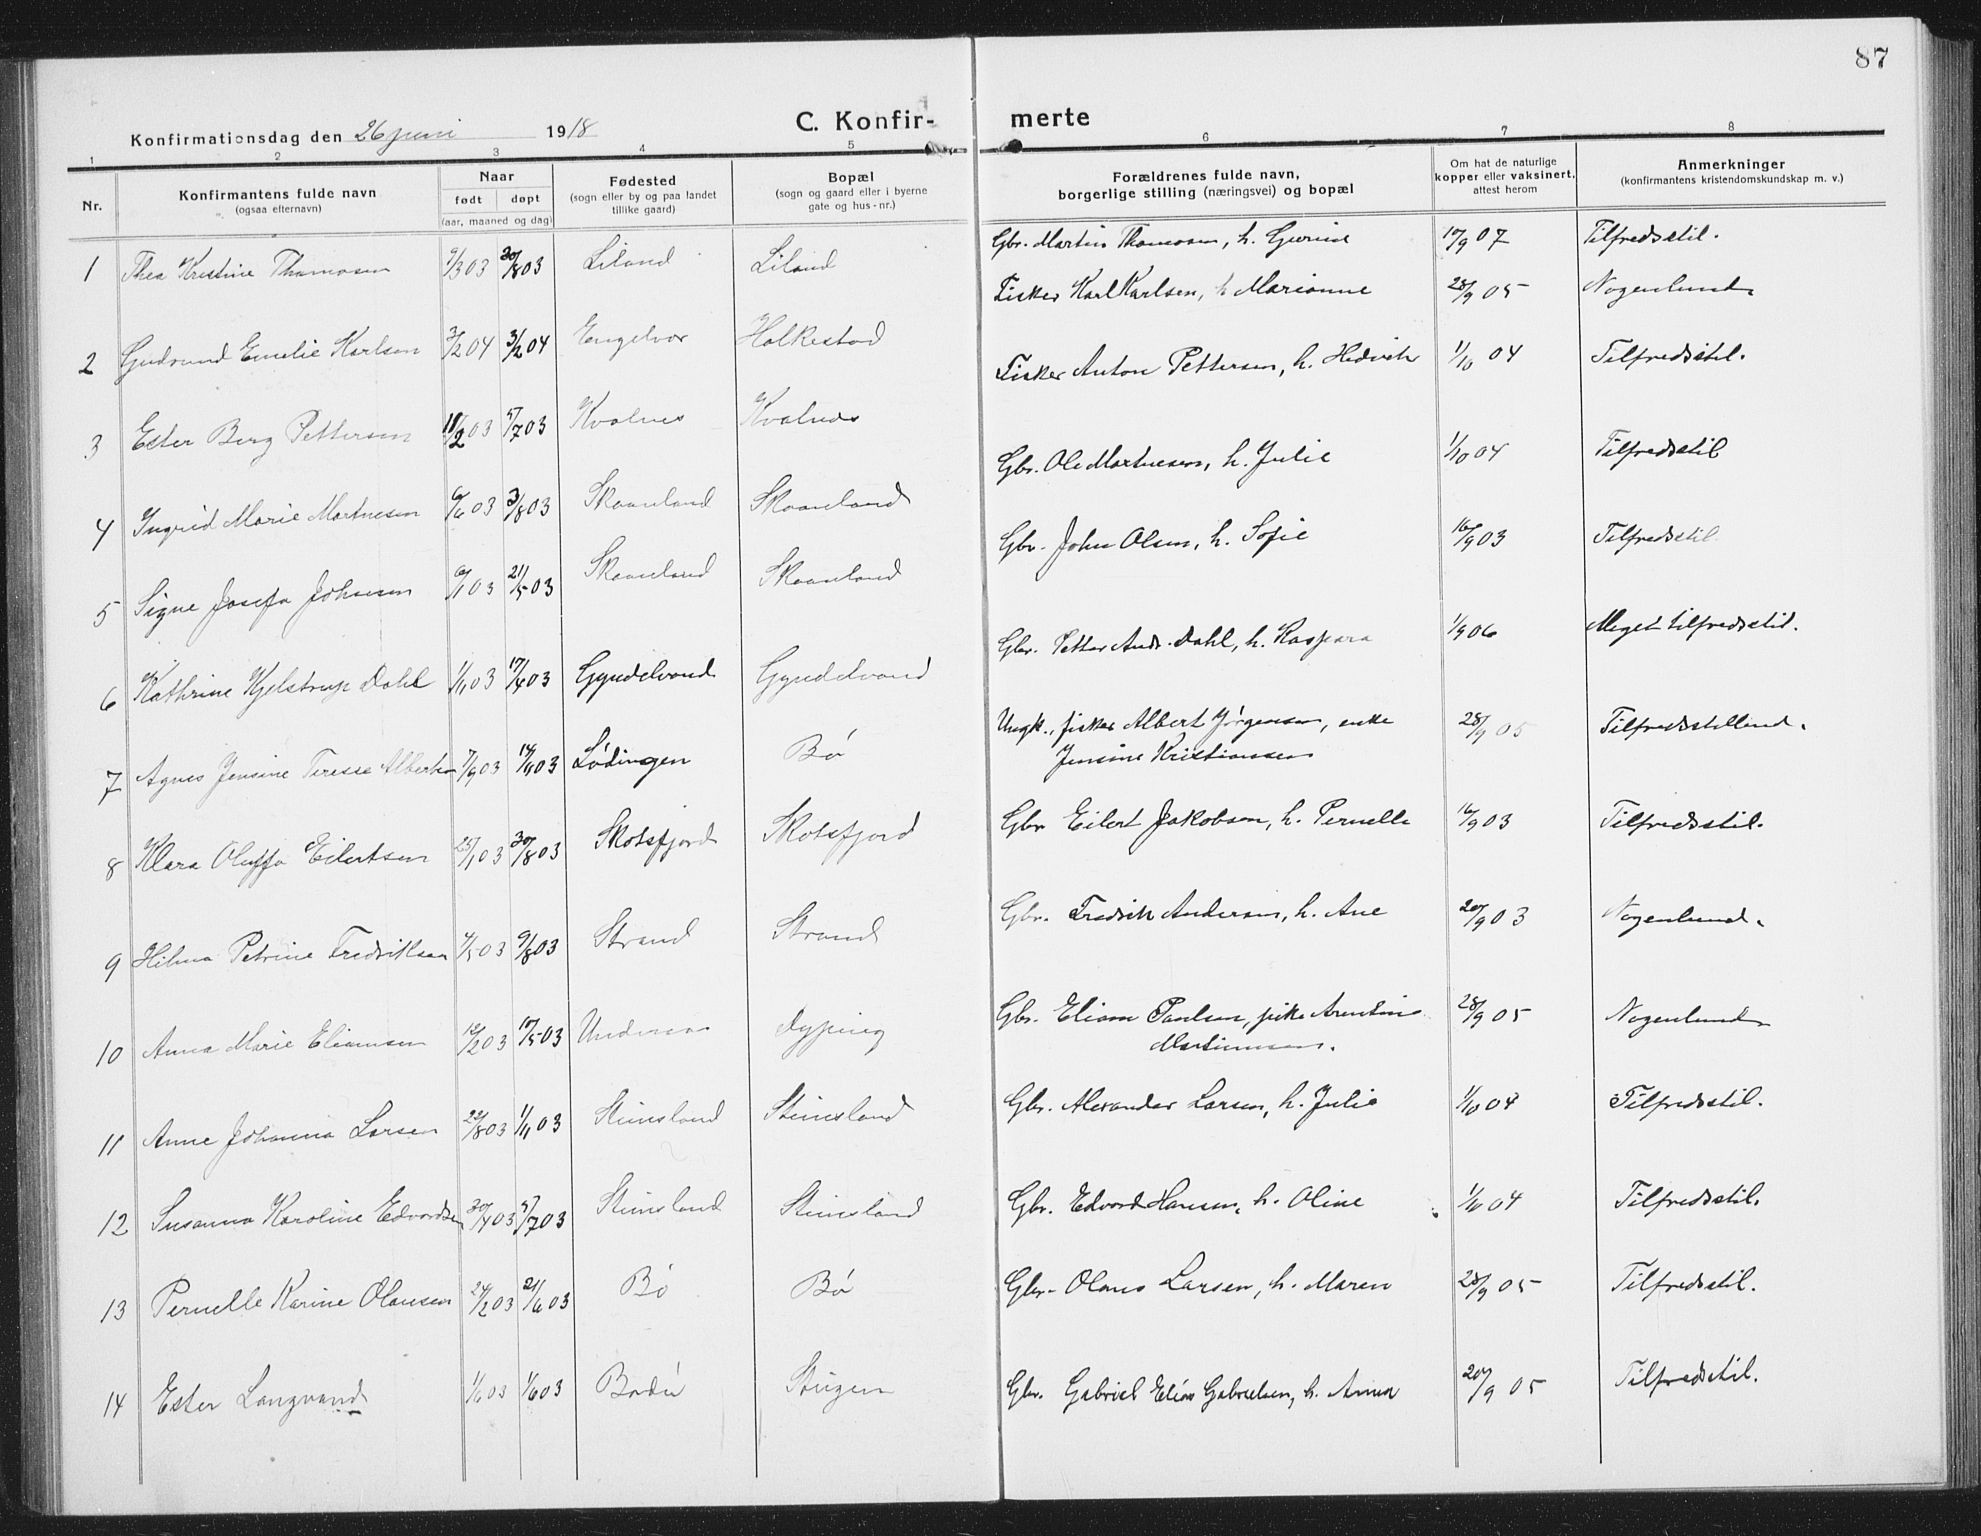 87
Konfirmationsdag den 26 juni 1918
C. Konfir-
merte
1 2 3 4 5 6 7 8
Nr.
Konfirmantens fulde navn
(ogsaa efternavn)
Naar
født døpt
(aar, maaned og dag)
Fødested
(sogn eller by og paa landet
tillike gaard)
Bopæl
(sogn og gaard eller i byerne
gate og hus-nr.)
Forældrenes fulde navn,
borgerlige stilling (næringsvei) og bopæl
Om hat de naturlige
kopper eller vaksinert,
attest herom
Anmerkninger
(konfirmantens kristendomskundskap m. v.)
1 Thea Kristine Thomassen 9/3 03 30/8 03 Liland Liland Gbr. Martin Thomassen, h. Gurine 17/9 07 Tilfredsstil.
2 Gudrund Emelie Karlsen 3/2 04 3/2 04 Engelvær Holkestad Fisker Karl Karlsen, h. Marianne 28/9 05 Nogenlund.
3 Ester Berg Pettersen 11/2 03 5/7 03 Kvalnes Kvalnes Fisker Anton Pettersen, h. Hedvik 1/10 04 Tilfredsstil.
4 Ingrid Marie Martnesen 6/6 03 3/8 03 Skaanland Skaanland Gbr. Ole Martnesen, h. Julie 1/10 04 Tilfredsstil
5 Signe Josefa Johnsen 6/1 03 21/5 03 Skaanland Skaanland Gbr. John Olsen, h. Sofie 16/9 03 Tilfredsstil
6 Kathrine Kjelstrup Dahl 1/1 03 17/4 03 Gyndelvand Gyndelvand Gbr. Petter Andr. Dahl, h. Kaspara 1/9 06 Meget tilfredsstil.
7 Agnes Jensine Teresse Albertsen 7/9 03 14/9 03 Lødingen Bø Ungk., fisker Albert Jørgensen, enke
Jensine Kristiansen 28/9 05 Tilfredsstillend.
8 Klara Oluffa Eilertsen 25/1 03 30/8 03 Skotsfjord Skotsfjord Gbr Eilert Jakobsen, h. Pernelle 16/9 03 Tilfredsstil.
9 Hilma Petrine Fredriksen 4/5 03 9/8 03 Strand Strand Gbr. Fredrik Andersen, h. Ane 20/9 03 Nogenlund.
10 Anna Marie Eliamsen 12/2 03 17/5 03 Dypping Gbr. Eliam Paulsen, pike Arentine
Martinussen. 28/9 05 Nogenlund
11 Anne Johanna Larsen 22/8 03 1/11 03 Steinsland Steinsland Gbr. Alexander Larsen, h. Julie 1/10 04 Tilfredsstil.
12 Susanna Karoline Edvardsen 30/4 03 5/7 03 Steinsland Steinsland Gbr. Edvard Hansen, h. Oline 1/10 04 Tilfredsstil.
13 Pernelle Karine Olausen 24/2 03 21/6 03 Bø Bø Gbr. Olaus Larsen, h. Maren 28/9 05 Tilfredsstil.
14 Ester Langvand 1/6 03 1/6 03 Bodø Steigen Gbr. Gabriel Elias Gabrielsen, h. Anna 20/9 05 Tilfredsstil.